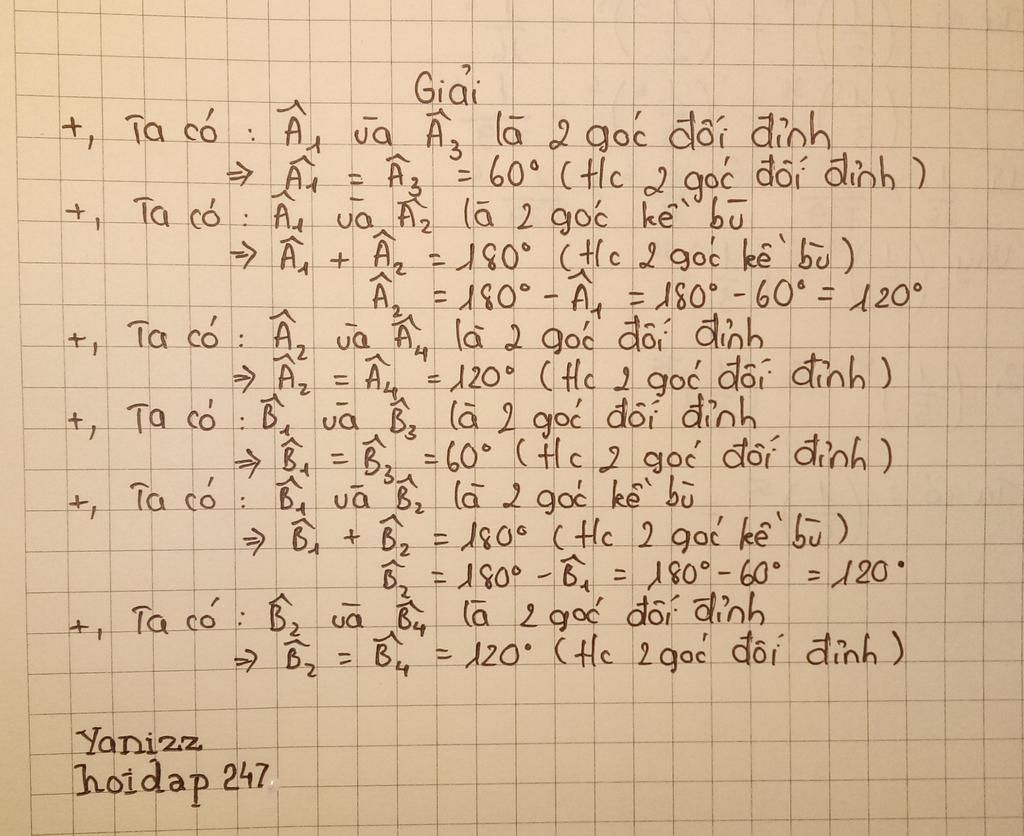 Giải
+, Ta có : Â₁ và Â₃ là 2 góc đối đỉnh
=> Â₁ = Â₃ = 60° (t/c 2 góc đối đỉnh)
+, Ta có : Â₁ và Â₂ là 2 góc kề bù
=> Â₁ + Â₂ = 180° (t/c 2 góc kề bù)
Â₂ = 180° - Â₁ = 180° - 60° = 120°
+, Ta có : Â₂ và Â₄ là 2 góc đối đỉnh
=> Â₂ = Â₄ = 120° (t/c 2 góc đối đỉnh)
+, Ta có : B̂₁ và B̂₃ là 2 góc đối đỉnh
=> B̂₁ = B̂₃ = 60° (t/c 2 góc đối đỉnh)
+, Ta có : B̂₁ và B̂₂ là 2 góc kề bù
=> B̂₁ + B̂₂ = 180° (t/c 2 góc kề bù)
B̂₂ = 180° - B̂₁ = 180° - 60° = 120°
+, Ta có : B̂₂ và B̂₄ là 2 góc đối đỉnh
=> B̂₂ = B̂₄ = 120° (t/c 2 góc đối đỉnh)
Yanizz
hoidap 247